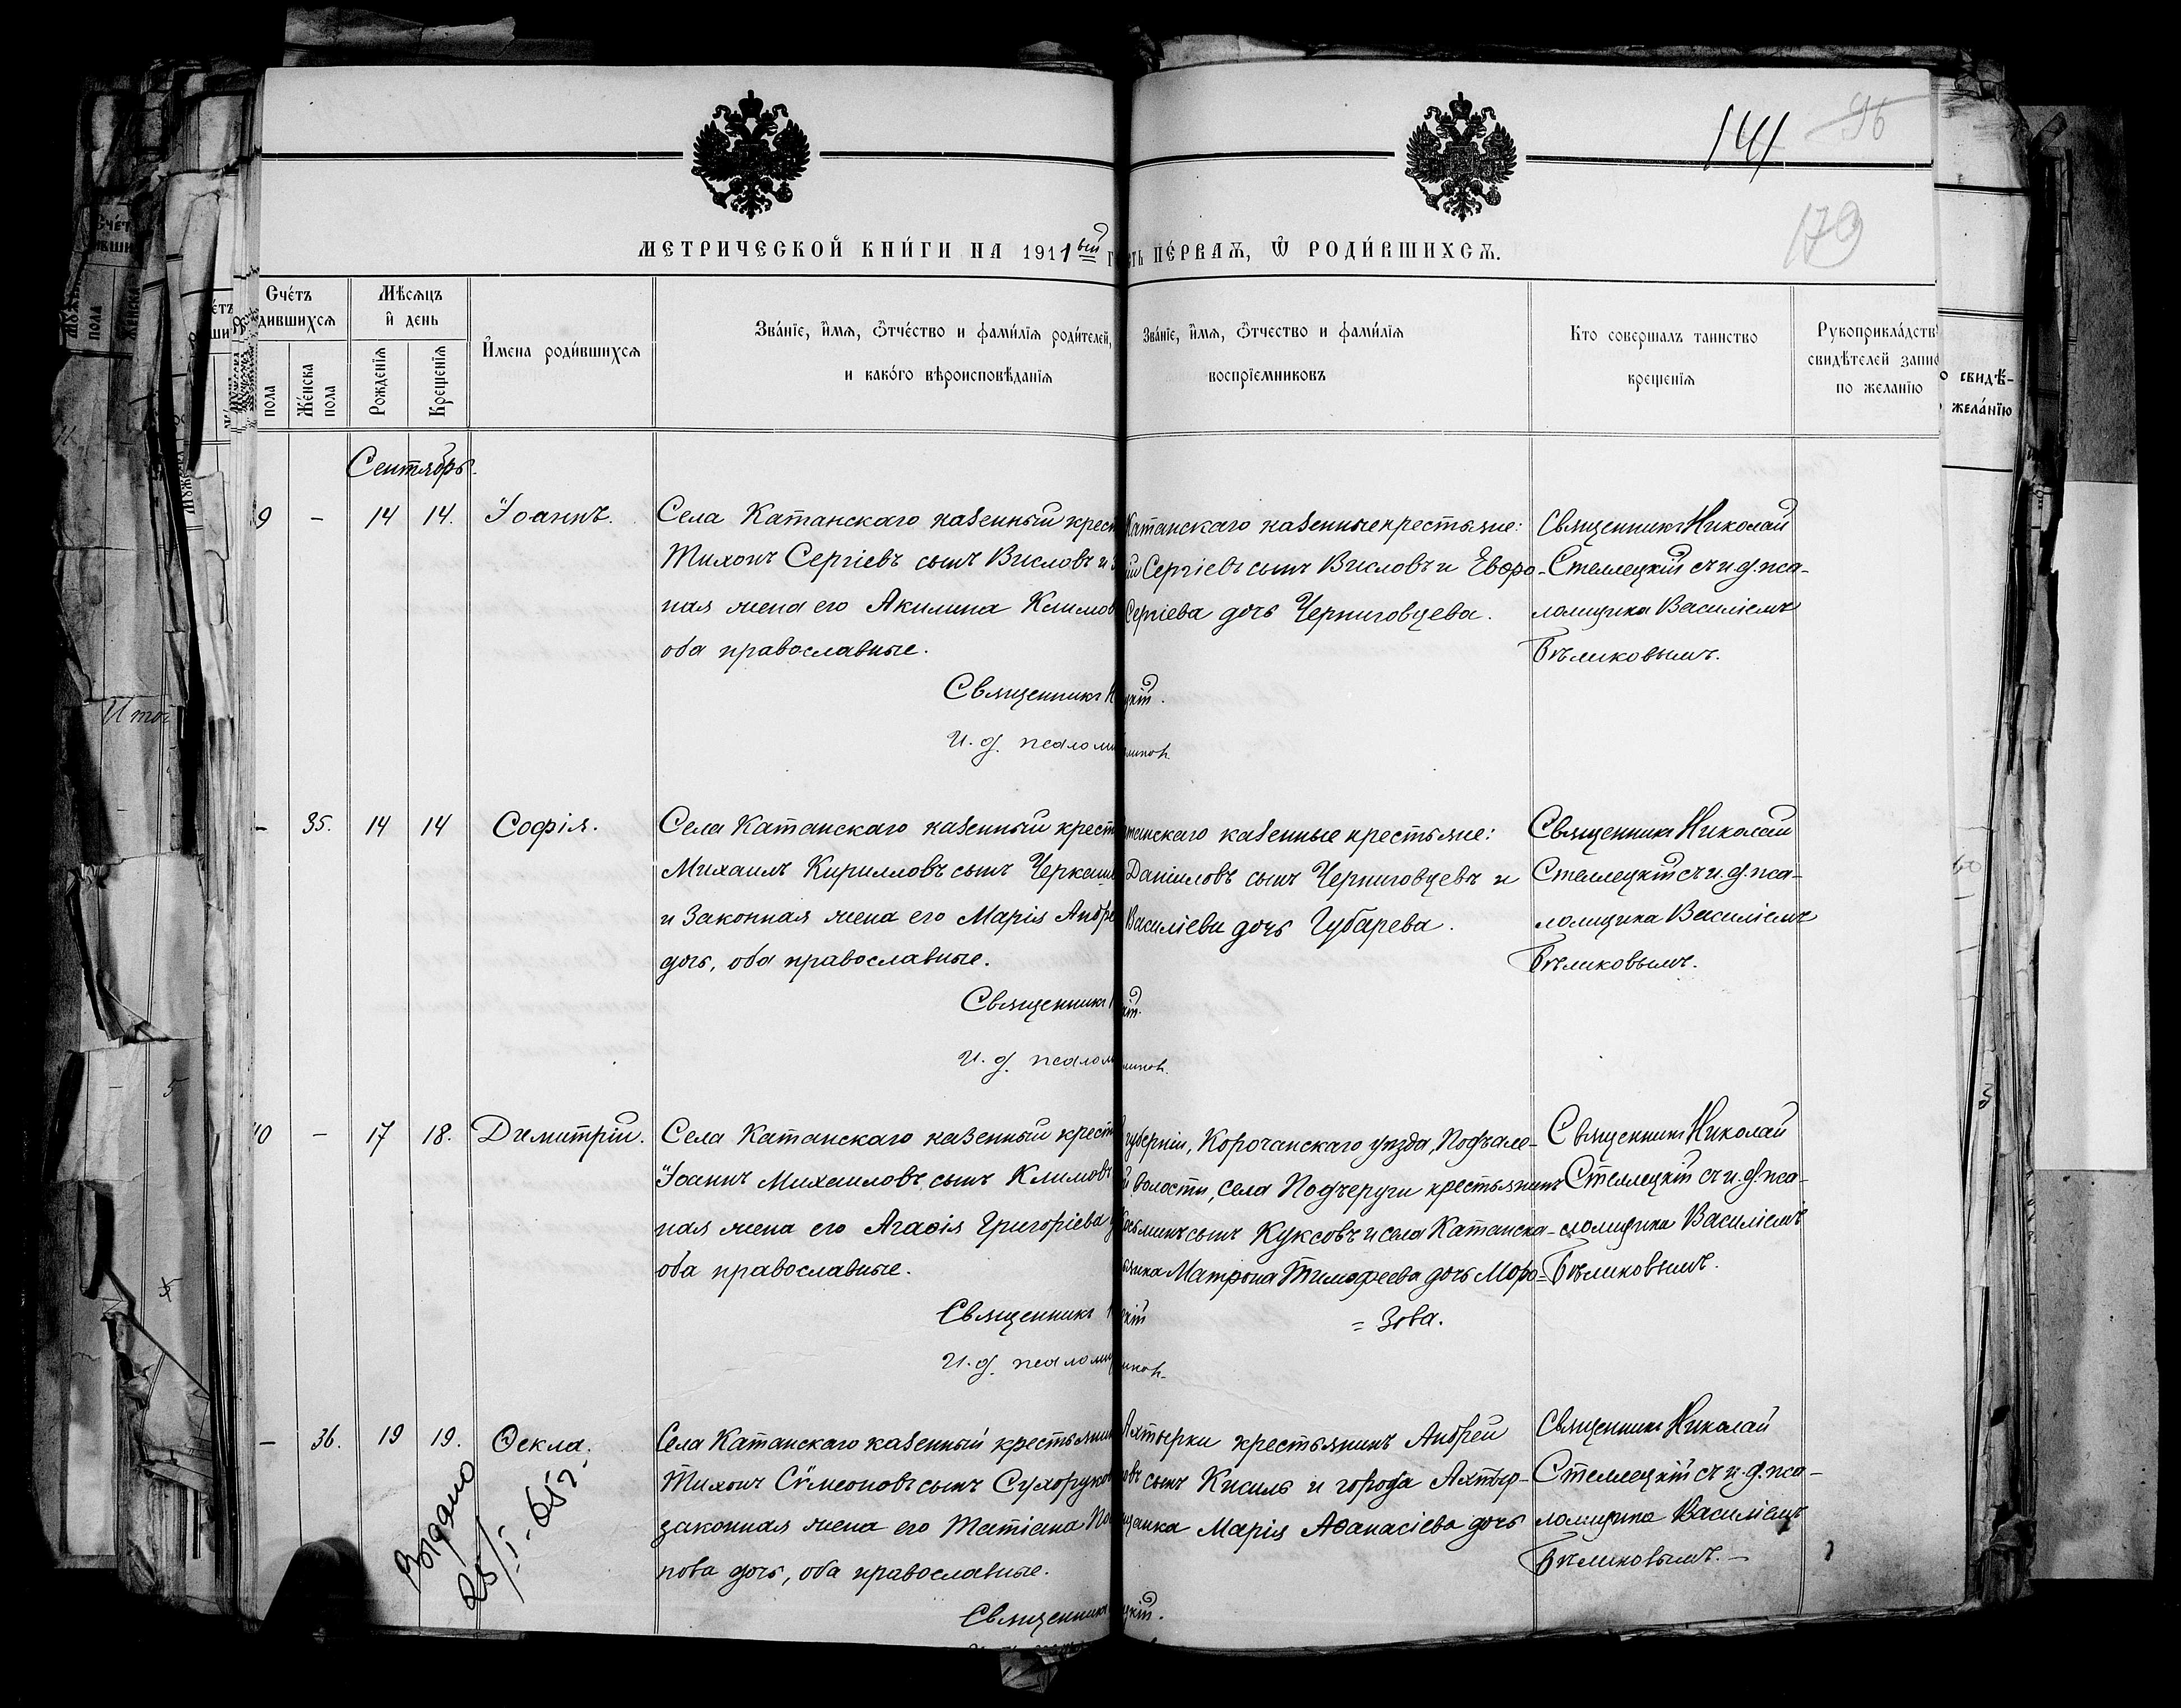 141 96
179
МЕТРИЧЕСКОЙ КНИ́ГИ НА 1911 вый
ПЕ́РВАѦ, Ѿ РОДИ́ВШИХСѦ.
Сче́тъ
дившихсѧ
Мѣ́сѧцъ
и҆ день
И҆мена роди́вшихсѧ
Зва́нїе, и҆́мѧ, ѻ҆́тче́ство и фами́лїѧ роди́телей,
и како́го вѣроисповѣ́данїѧ
Зва́нїе, и҆́мѧ, ѻ҆́тчество и фами́лїѧ
воспрїемниковъ
Кто совершалъ таинство
крещенїѧ
Рукоприкла́дств
свидѣтелей запис
по желанїю
пола
Же́нска
пола
Рожденїѧ
Крещенїѧ
о свидѣ-
жела́нїю
Сентябрь.
9 - 14 14. Іоаннъ.
Села Катанскаго казенный крест
Тихонъ Сергіевъ сынъ Висловъ и
ная жена его Акилина Климов
оба православные.
Священникъ Н
И. д. псалом
Катанскаго казенные крестьяне:
Сергіевъ сынъ Висловъ и Евфро-
Сергіева дочь Черниговцева.
цкій.
ликов.
Священникъ Николай
Стеллецкій съ и. д. пса-
ломщика Василіемъ
Бѣликовымъ.
- 35. 14 14 Софія.
Села Катанскаго казенный крест
Михаилъ Кирилловъ сынъ Черкаш
и законная жена его Марія Андре
дочь, оба православные.
Священникъ
И. д. псалом
танскаго казенные крестьяне:
Даніиловъ сынъ Черниговцевъ и
Василіева дочь Губарева.
кій.
ликов.
Священникъ Николай
Стеллецкій съ и. д. пса-
ломщика Василіемъ
Бѣликовымъ.
10 - 17 18. Димитрій.
Села Катанскаго казенный крест
Іоаннъ Михаиловъ сынъ Климовъ
ная жена его Агафія Григоріева
оба православные.
Священникъ
И. д. псалом
губерніи, Корочанскаго уѣзда, Подъяле-
й волости, села Подъяруги крестьянинъ
сынъ Куксовъ и села Катанска-
Матрона Тимофеева дочь Моро-
= зова.
кій
ликов.
Священникъ Николай
Стеллецкій съ и. д. пса-
ломщика Василіемъ
Бѣликовымъ.
- 36. 19 19. Ѳекла.
Выдано
25/I-65г.
Села Катанскаго казенный крестьянин
Тихонъ Сѵмеоновъ сынъ Сухоруков
законная жена его Татіана По
пова дочь, оба православные.
Священникъ
Ахтырки крестьянинъ Андрей
овъ сынъ Кисиль и города Ахтыр-
щанка Марія Аѳанасіева дочь
цкій.
Священникъ Николай
Стеллецкій съ и. д. пса-
ломщика Василіемъ
Бѣликовымъ.
Итог